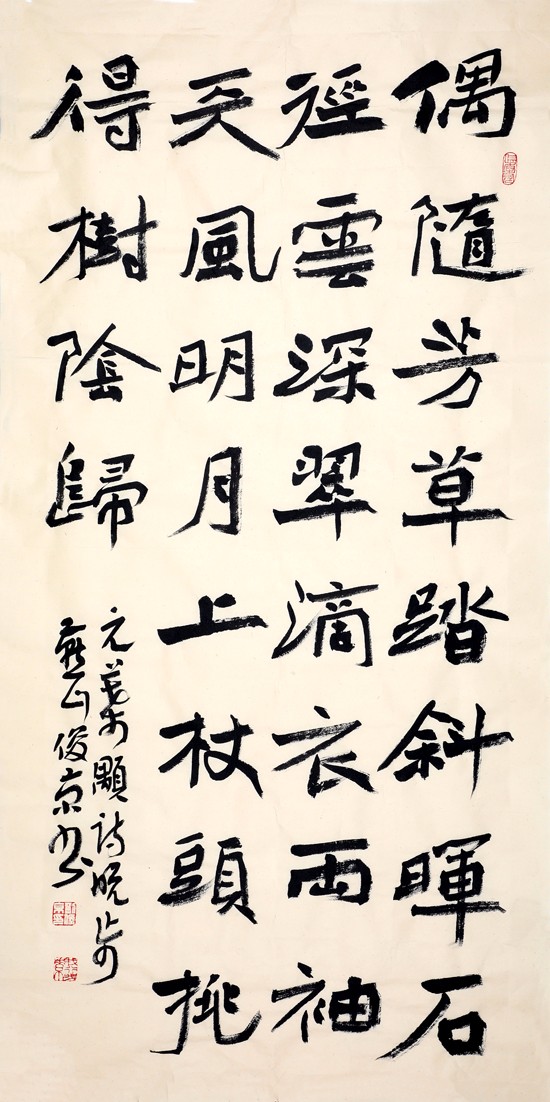 偶隨芳草踏斜暉石
徑雲深翠滴衣兩袖
天風明月上杖頭挑
得樹陰歸
元葉顒詩晚步
燕山俊京书